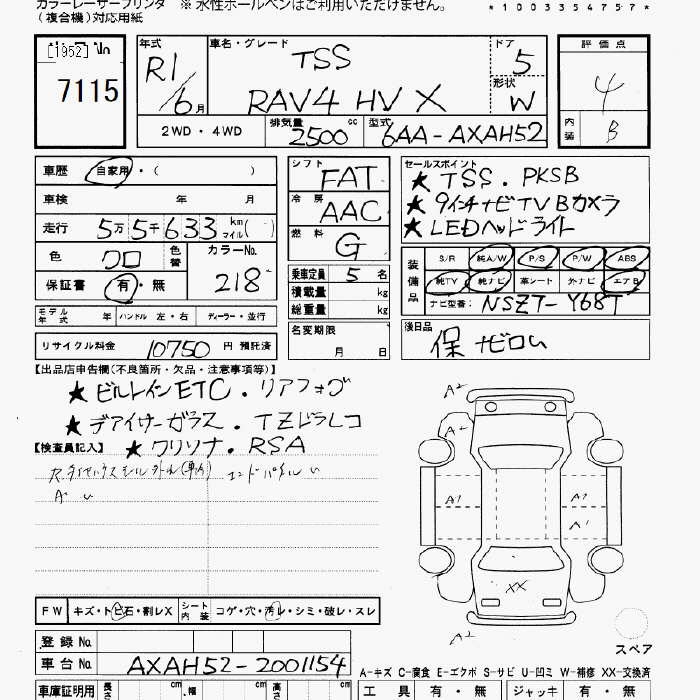 カラーレーザープリンタ ※ 水性ボールペンはご利用いただけません。
(複合機)対応用紙
*1003354757*
[1952]
7115
年式 R1/6月
車名・グレード TSS
RAV4 HV X
ドア 5
形状 W
評価点 4
内装 B
2WD・4WD 排気量 2500 cc 型式 6AA-AXAH52
車歴 自家用・( )
車検 年 月
走行 5万5千633 km マイル( )
色 クロ 色替 カラーNo. 218
保証書 有・無
モデル年式 年 ハンドル 左・右 ディーラー・並行
リサイクル料金 10750 円 預託済
シフト FAT
冷房 AAC
燃料 G
乗車定員 5 名
積載量 kg
総重量 kg
名変期限 月 日
セールスポイント
★ TSS. PKSB
★ 9インチナビTVBカメラ
★ LEDヘッドライト
装備品 S/R 純A/W P/S P/W ABS
純TY 純ナビ 革シート 外ナビ エアB
ナビ型番: NSZT-Y68T
後日品
保
【出品店申告欄(不良箇所・欠品・注意事項等)】
★ ビルトインETC. リアフォグ
★ デアイサーガラス. TZドラレコ
【検査員記入】 ★ クリソナ. RSA
A2
A2
A1
A1
A1
XX
A2
スペア
FW キズ・トビ石・割レX シート内装 コゲ・穴・汚レ・シミ・破レ・スレ
登録 No.
車台 No. AXAH52-2001154
A-キズ C-腐食 E-エクボ S-サビ U-凹ミ W-補修 XX-交換済
車庫証明用 長さ cm 幅 cm 高さ cm
工具 有・無 ジャッキ 有・無